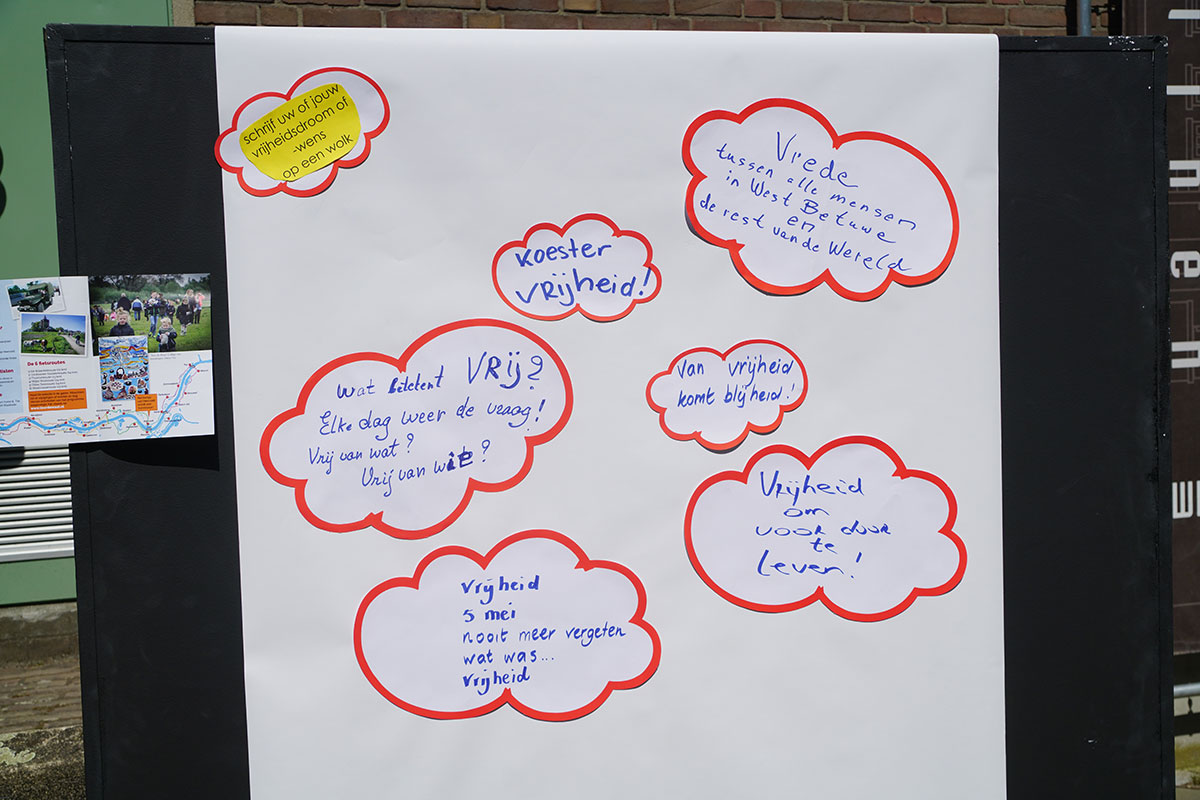 schrijf uw of jouw
vrijheidsdroom of
-wens
op een wolk
Vrede
tussen alle mensen
in West Betuwe
en
de rest van de Wereld
Koester
VRijheid!
Wat betekent VRij?
Elke dag weer de vraag!
Vrij van wat?
Vrij van wie?
Van vrijheid
komt blijheid!
Vrijheid
om
voor door
te
leven!
Vrijheid
5 mei
nooit meer vergeten
wat was...
Vrijheid
De 6 fietsroutes